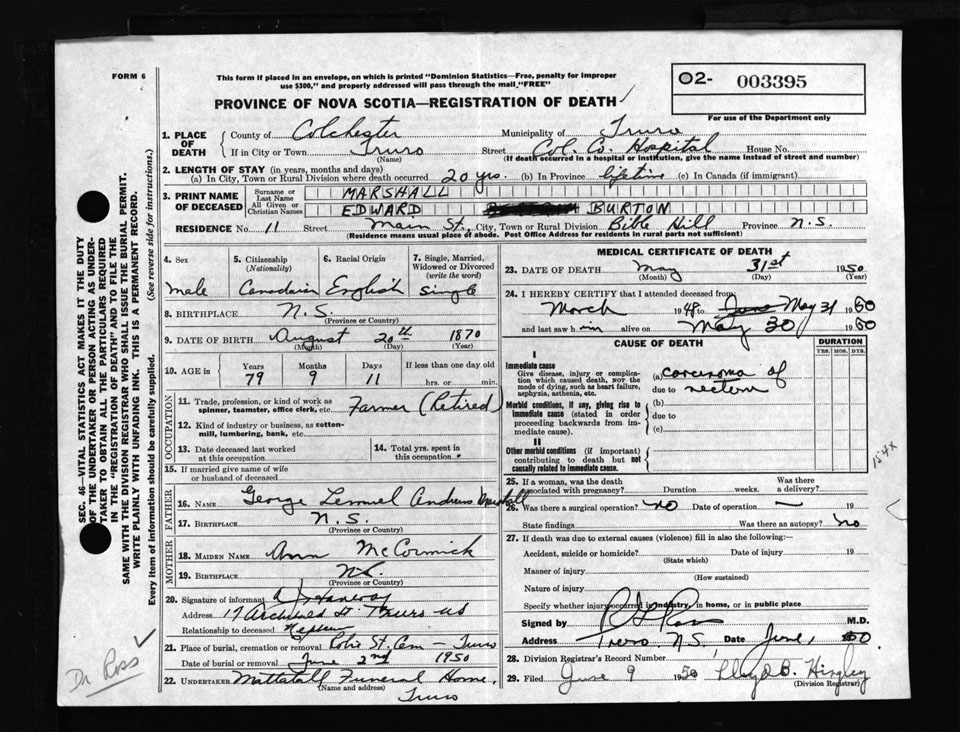 FORM 6
This form if placed in an envelope, on which is printed "Dominion Statistics—Free, penalty for improper
use $300," and properly addressed will pass through the mail, "FREE"
O2- 003395
For use of the Department only
PROVINCE OF NOVA SCOTIA—REGISTRATION OF DEATH
1. PLACE OF DEATH
County of Colchester Municipality of Truro
If in City or Town Truro Street Col. Co. Hospital House No.
(Name) (If death occurred in a hospital or institution, give the name instead of street and number)
2. LENGTH OF STAY (in years, months and days)
(a) In City, Town or Rural Division where death occurred 20 yrs. (b) In Province lifetime (c) In Canada (if immigrant)
3. PRINT NAME OF DECEASED
Surname or Last Name MARSHALL
All Given or Christian Names EDWARD BURTON
RESIDENCE No. 11 Street Main St., City, Town or Rural Division Bible Hill Province N.S.
(Residence means usual place of abode. Post Office Address for residents in rural parts not sufficient)
4. Sex 5. Citizenship (Nationality) 6. Racial Origin 7. Single, Married, Widowed or Divorced (write the word)
male Canadian English Single
8. BIRTHPLACE N.S.
(Province or Country)
9. DATE OF BIRTH August 20th 1870
(Month) (Day) (Year)
10. AGE in Years Months Days If less than one day old
79 9 11 hrs. or min.
OCCUPATION
11. Trade, profession or kind of work as spinner, teamster, office clerk, etc. Farmer (Retired)
12. Kind of industry or business, as cotton-mill, lumbering, bank, etc.
13. Date deceased last worked at this occupation
14. Total yrs. spent in this occupation
15. If married give name of wife or husband of deceased
FATHER
16. NAME George Lemuel Andrews Marshall
17. BIRTHPLACE N.S.
(Province or Country)
MOTHER
18. MAIDEN NAME Ann McCormick
19. BIRTHPLACE N.S.
(Province or Country)
20. Signature of informant
Address 17 Archibald St Truro NS
Relationship to deceased Nephew
21. Place of burial, cremation or removal Robie St. Cem — Truro
Date of burial or removal June 2nd 1950
22. UNDERTAKER Mattatall Funeral Home,
(Name and address)
Truro
MEDICAL CERTIFICATE OF DEATH
23. DATE OF DEATH May 31st 1950
(Month) (Day) (Year)
24. I HEREBY CERTIFY that I attended deceased from
March 1948 to May 31 1950
and last saw him alive on May 30 1950
CAUSE OF DEATH
DURATION
YRS. MOS. DYS.
I
Immediate cause
Give disease, injury or complication which caused death, NOT the mode of dying, such as heart failure, asphyxia, asthenia, etc.
(a) carcinoma of
due to rectum
Morbid conditions, if any, giving rise to immediate cause (stated in order proceeding backwards from immediate cause).
(b)
due to
(c)
II
Other morbid conditions (if important) contributing to death but not causally related to immediate cause.
154X
25. If a woman, was the death associated with pregnancy? Duration weeks. Was there a delivery?
26. Was there a surgical operation? no Date of operation — 19
State findings Was there an autopsy? No
27. If death was due to external causes (violence) fill in also the following:—
Accident, suicide or homicide? Date of injury 19
(State which)
Manner of injury
(How sustained)
Nature of injury
Specify whether injury occurred in industry, in home, or in public place
Signed by Ross M.D.
Address Truro N.S. Date June, 1950
28. Division Registrar's Record Number
29. Filed June 9 1950 Lloyd B. Hingley
(Division Registrar)
SEC. 46—VITAL STATISTICS ACT MAKES IT THE DUTY
OF THE UNDERTAKER OR PERSON ACTING AS UNDER-
TAKER TO OBTAIN ALL THE PARTICULARS REQUIRED
IN THE "REGISTRATION OF DEATH" AND TO FILE THE
SAME WITH THE DIVISION REGISTRAR WHO SHALL ISSUE THE BURIAL PERMIT.
WRITE PLAINLY WITH UNFADING INK. THIS IS A PERMANENT RECORD.
Every item of information should be carefully supplied. (See reverse side for instructions.)
Dr Ross